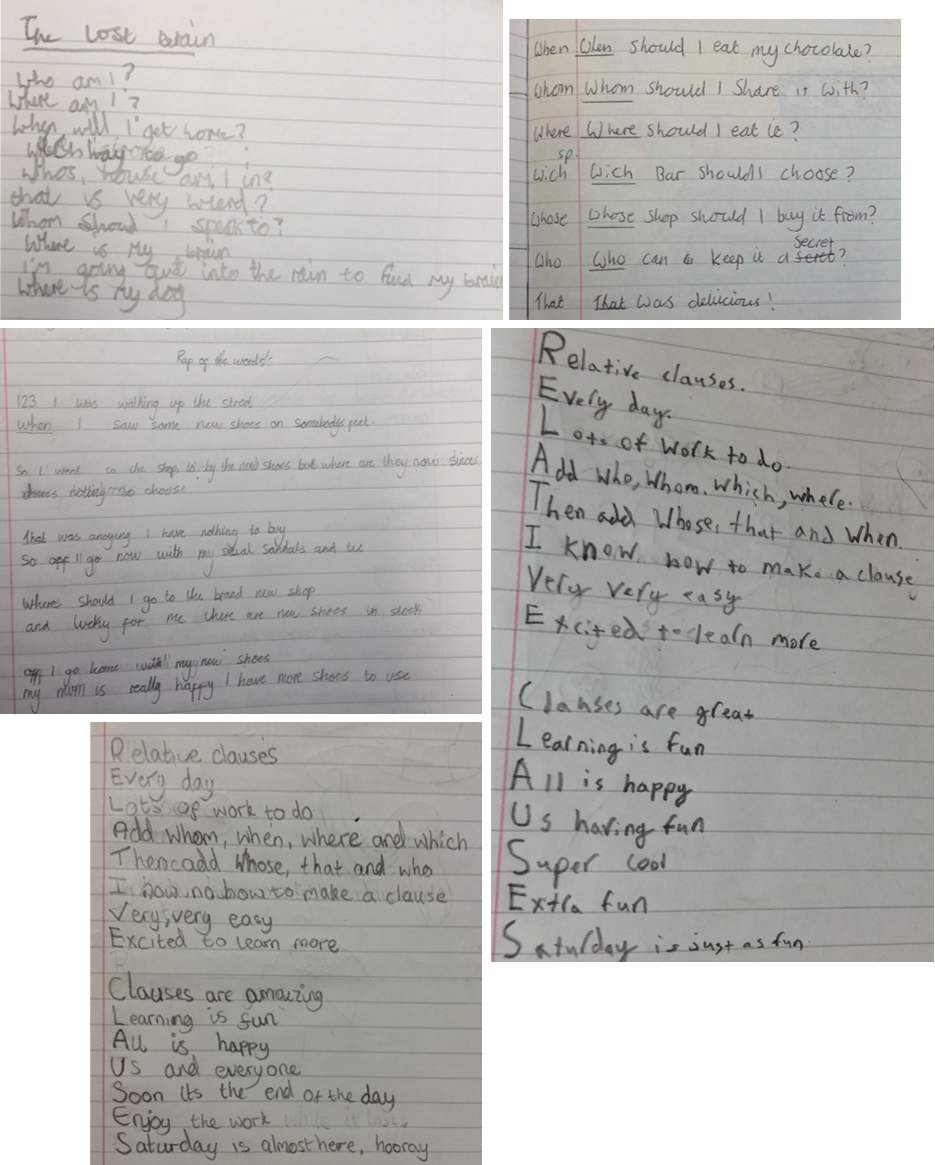 The lost brain
Who am I?
Where am I?
When will I get home?
Which way to go?
Whos, house am I in?
that is very wierd?
Whom should I speak to?
Where is My brain
I'm going out into the rain to find my brain
Where is my dog
When When should I eat my chocolate?
Whom Whom should I Share it with?
Where Where should I eat it?
sp.
Wich Wich Bar should I choose?
Whose Whose shop should I buy it from?
Secret
Who Who can keep it a seret?
That That was deliicious!
Rap of the words!
123 I was walking up the street
when I saw some new shoes on somebodys feet.
So I went to the shop to by the new shoes but where are they now
there's nothing to choose
That was anoying I have nothing to buy
So off I'll go now with my usual sandals and tie
Where should I go to the brand new shop
and lucky for me there are new shoes in stock
off I go home with my new shoes
my mum is really happy I have more shoes to use
Relative clauses.
Every day.
Lots of work to do.
Add who, whom, which, where.
Then add Whose, that and when.
I know how to make a clause
Very Very easy
Excited to learn more
Clauses are great
Learning is fun
All is happy
Us having fun
Super cool
Extra fun
Saturday is just as fun.
Relative clauses
Every day
Lots of work to do
Add whom, when, where and which
Then add whose, that and who
I how to make a clause
Very, very easy
Excited to learn more
Clauses are amaizing
Learning is fun
All is happy
Us and everyone
Soon its the end of the day
Enjoy the work while it lasts
Saturday is almost here, hooray